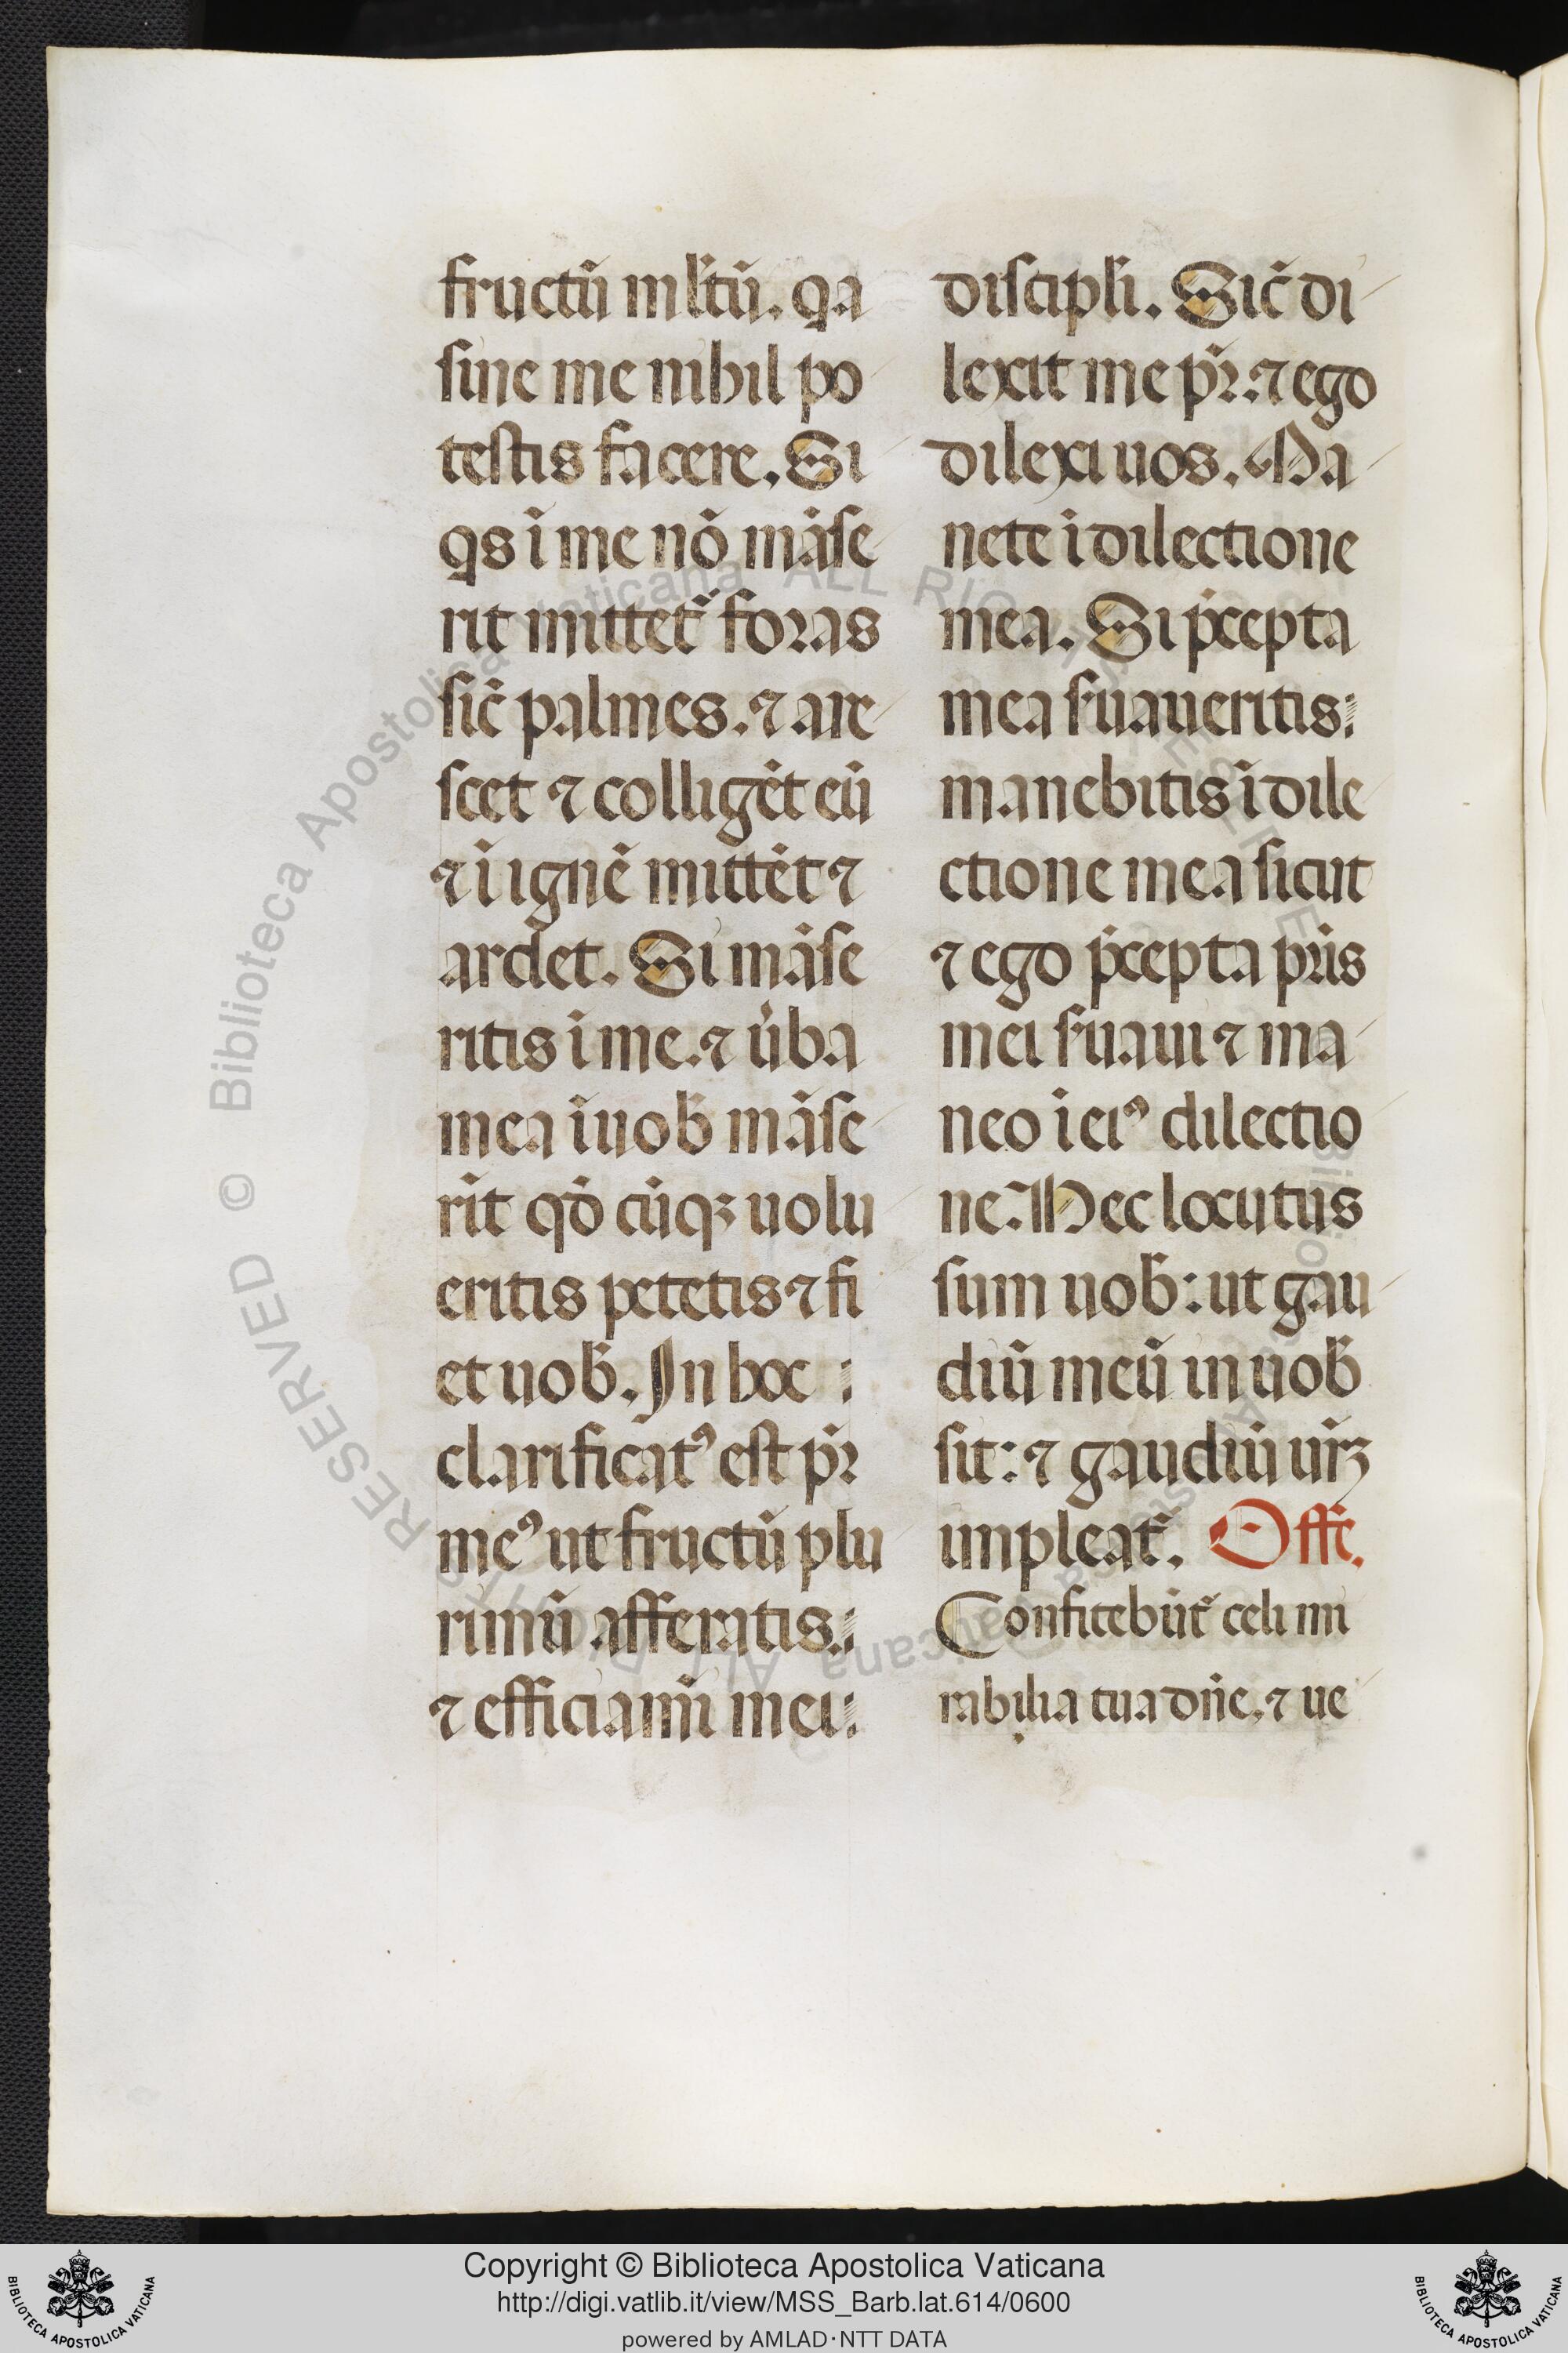 fructū ml̄tū. qͥa
sine me nihil po
testis facere. Si
qͥs ī me nō māse
rit mittet᷑ foras
sic̄ palmes. ⁊ are
scet ⁊ colligēt eū
⁊ ī ignē mittēt ⁊
ardet. Si māse
ritis ī me. ⁊ ůba
mea ī uob̄ māse
rīt qd̄ cūqꝫ uolu
eritis petetis ⁊ fi
et uob̄. In hoc
clarificatꝰ est pr̄
meꝰ ut fructū plu
rimū afferatis.
⁊ efficiam̄i mei
discipl̄i. Sic̄ di
lexit me pr̄. ⁊ ego
dilexi uos. Ma
nete ī dilectione
mea. Si p̄cepta
mea ſ̓uaueritis:
manebitis ī dile
ctione mea sicut
⁊ ego p̄cepta pr̄is
mei ſ̓uaui ⁊ ma
neo ī eiꝰ dilectio
ne. Hec locutus
sum uob̄: ut gau
diū meū in uob̄
sit: ⁊ gaudiū ur̄ꝫ
impleat᷑. Offe.
Confitebūt᷑ celi mi
rabilia tua dn̄e. ⁊ ue
© Biblioteca Apostolica Vaticana ALL RIGHTS RESERVED
Copyright © Biblioteca Apostolica Vaticana
http://digi.vatlib.it/view/MSS_Barb.lat.614/0600
powered by AMLAD·NTT DATA
BIBLIOTECA APOSTOLICA VATICANA
BIBLIOTECA APOSTOLICA VATICANA